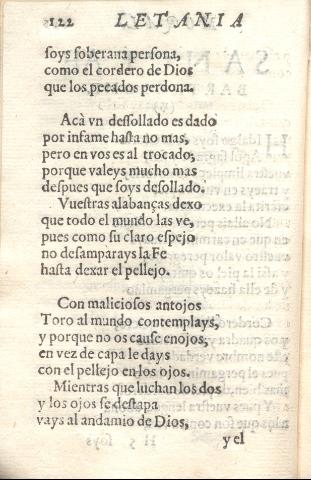 122 LETANIA
soys soberana persona,
como el cordero de Dios
que los pecados perdona.
Acà vn dessollado es dado
por infame hasta no mas,
pero en vos es al trocado,
porque valeys mucho mas
despues que soys desollado.
Vuestras alabanças dexo
que todo el mundo las ve,
pues como su claro espejo
no desamparays la Fe
hasta dexar el pellejo.
Con maliciosos antojos
Toro al mundo contemplays,
y porque no os cause enojos,
en vez de capa le days
con el pellejo en los ojos.
Mientras que luchan los dos
y los ojos se destapa
vays al andamio de Dios,
y el